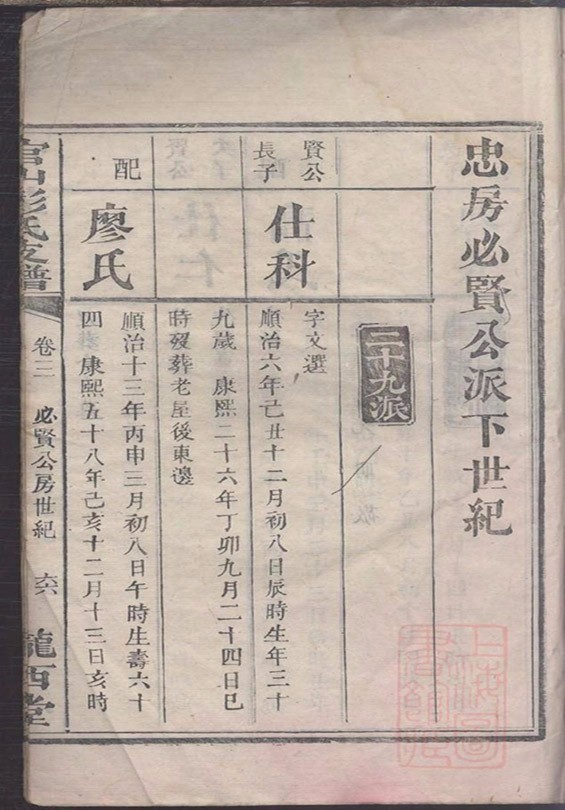 忠房必賢公派下世紀
二十九派
賢公
長子
仕科
字文選
順治六年己丑十二月初八日辰時生年三十
九歲 康熙二十六年丁卯九月二十四日巳
時歿葬老屋後東邊
配
廖氏
順治十三年丙申三月初八日午時生壽六十
四 康熙五十八年己亥十二月十三日亥時
官山彭氏支譜
卷二
必賢公房世紀
六
隴西堂